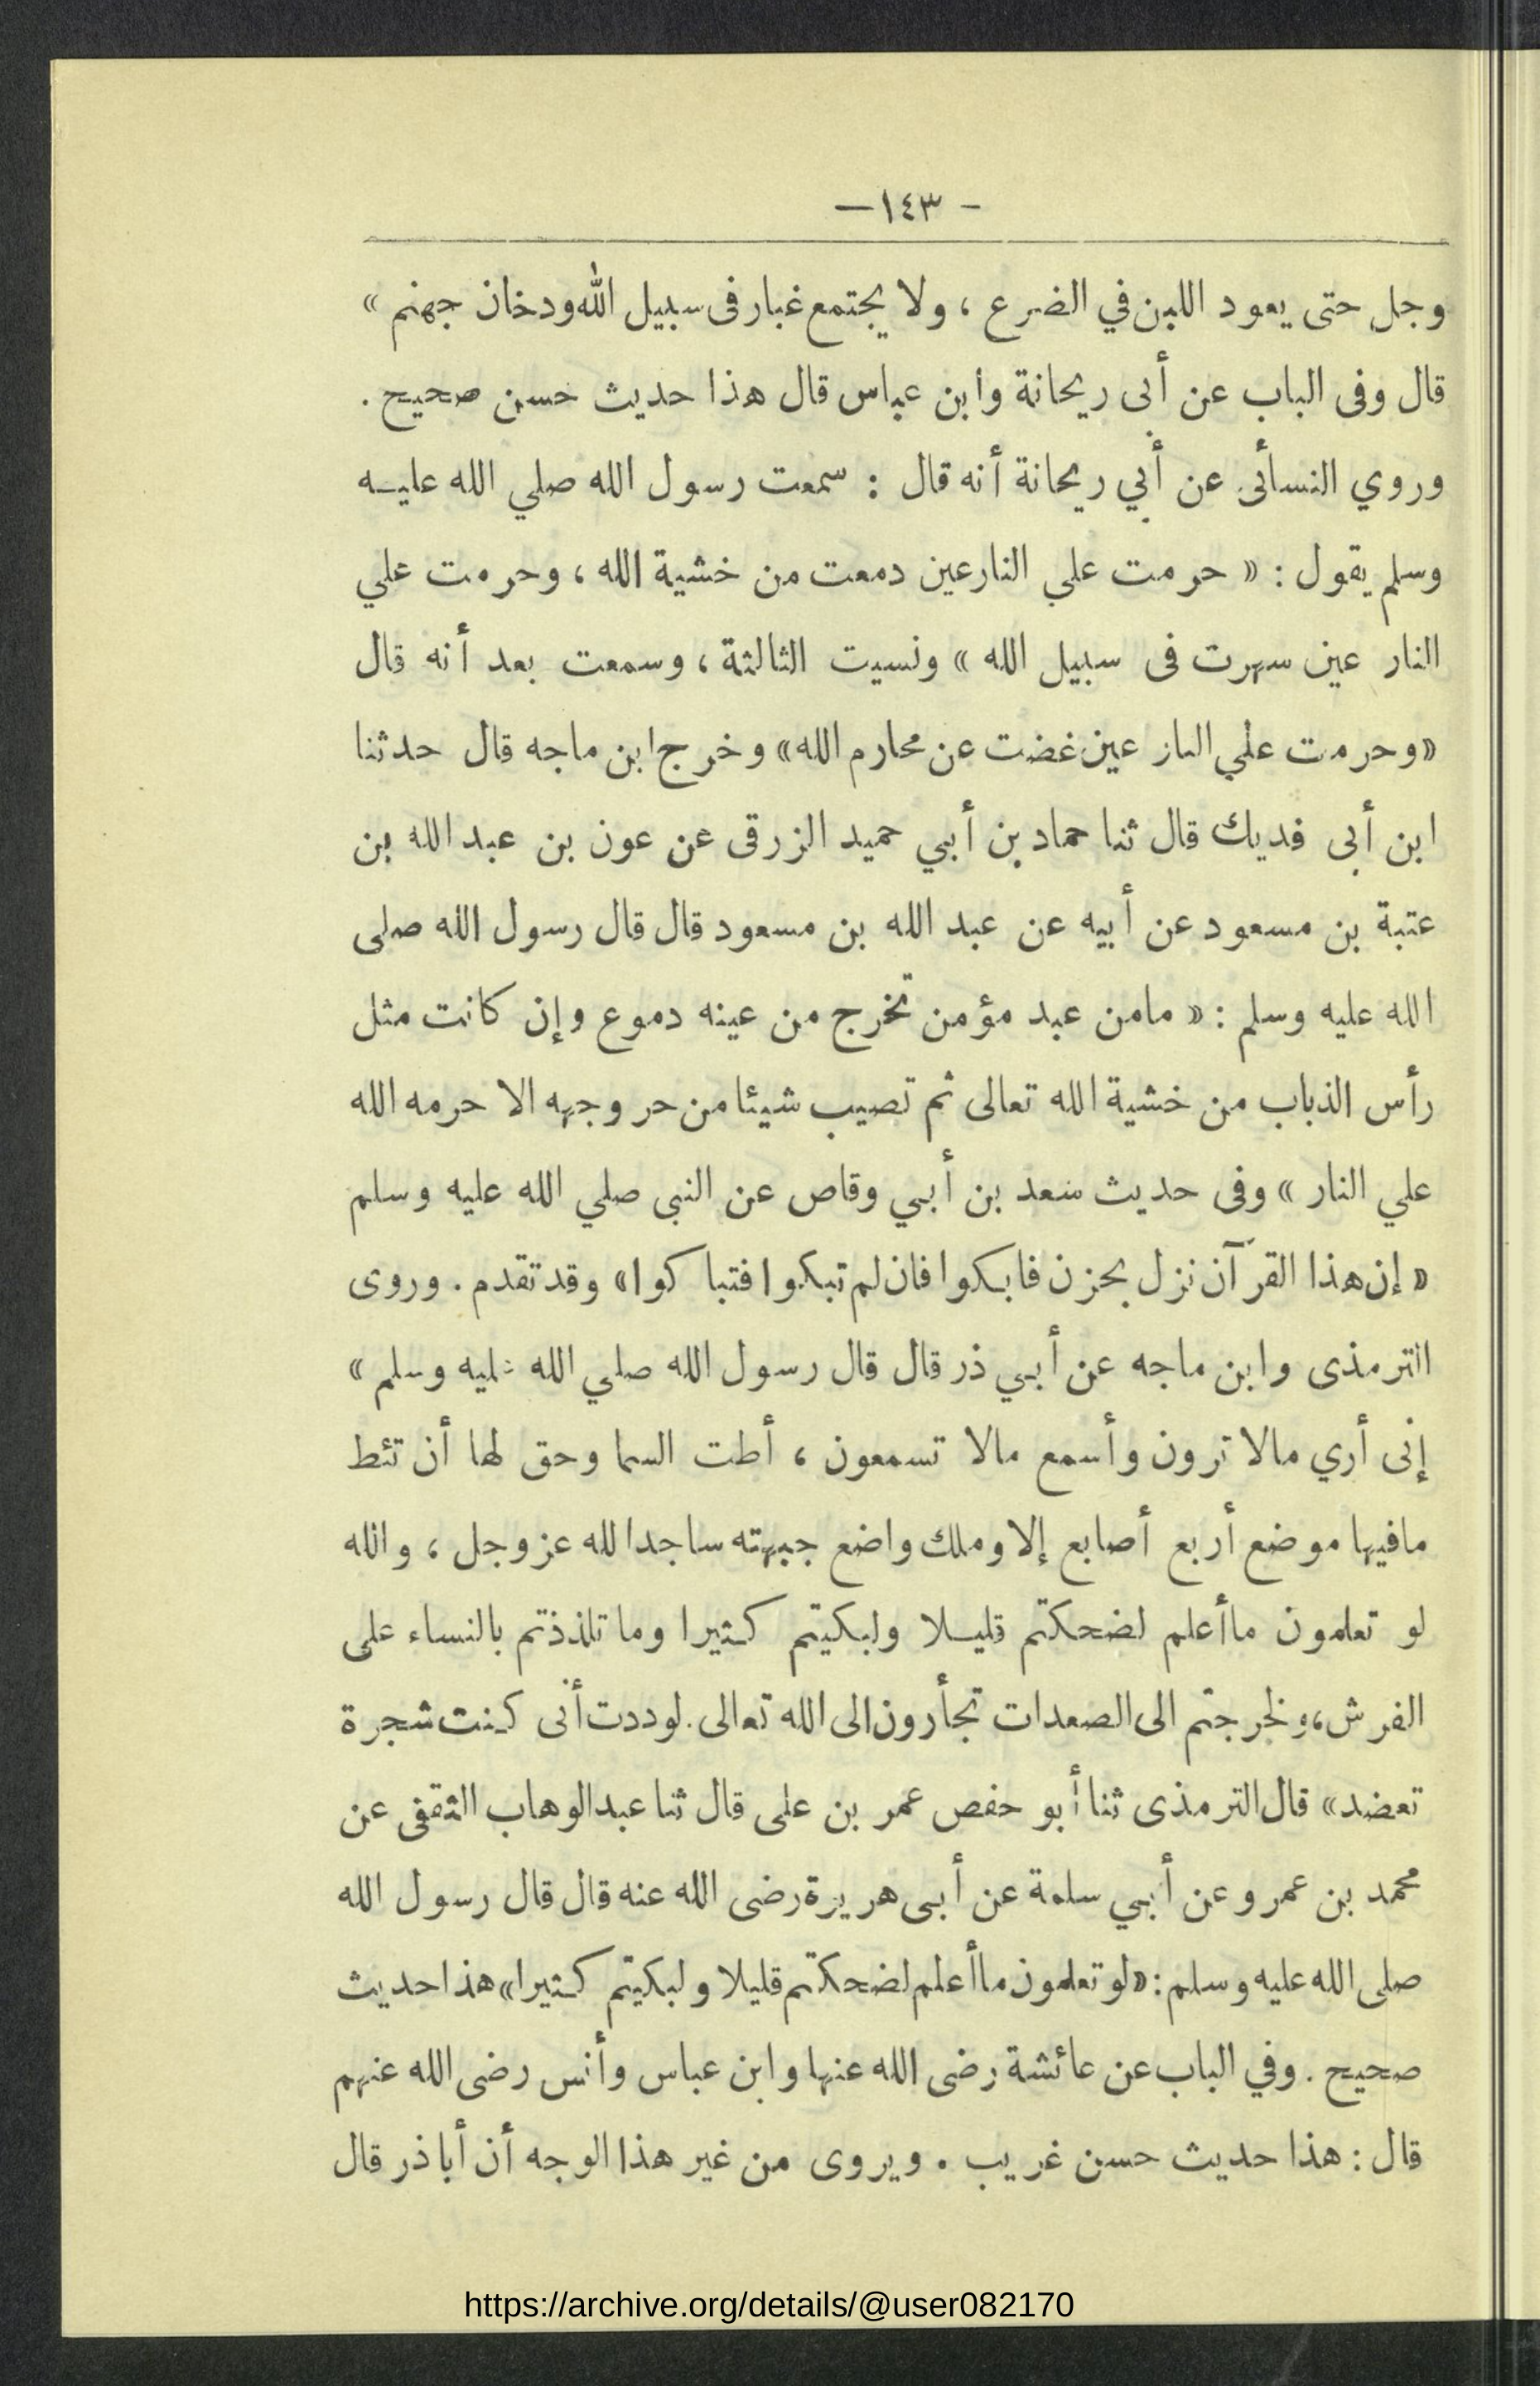 - ١٤٣ —
وجل حتى يعود اللبن في الضرع ، ولا يجتمع غبار فى سبيل الله ودخان جهنم »
قال وفى الباب عن أبى ريحانة وابن عباس قال هذا حديث حسن صحيح .
وروي النسأئى عن أبي ريحانة أنه قال : سمعت رسول الله صلي الله عليـه
وسلم يقول : « حرمت علي النار عين دمعت من خشية الله ، وحرمت علي
النار عين سهرت فى سبيل الله » ونسيت الثالثة ، وسمعت بعد أنه قال
«وحرمت علي النار عين غضت عن محارم الله» وخرج ابن ماجه قال حدثنا
ابن أبى فديك قال ثنا حماد بن أبي حميد الزرقى عن عون بن عبد الله بن
عتبة بن مسعود عن أبيه عن عبد الله بن مسعود قال قال رسول الله صلى
الله عليه وسلم : « مامن عبد مؤمن تخرج من عينه دموع وإن كانت مثل
رأس الذباب من خشية الله تعالى ثم تصيب شيئا من حر وجهه الا حرمه الله
علي النار » وفى حديث سعد بن أبي وقاص عن النبى صلي الله عليه وسلم
« إن هذا القرآن نزل بحزن فابكوا فان لم تبكوا فتباكوا» وقد تقدم . وروى
الترمذى وابن ماجه عن أبي ذر قال قال رسول الله صلي الله عليه وسلم »
إنى أري مالا ترون وأسمع مالا تسمعون ، أطت السما وحق لها أن تئط
مافيها موضع أربع أصابع إلا وملك واضع جبهته ساجدا لله عز وجل ، والله
لو تعلمون ماأعلم لضحكتم قليـلا ولبكيتم كـثيرا وما تلذذتم بالنساء على
الفرش ، ولخرجتم الى الصعدات تجأرون الى الله تعالى . لوددت أنى كـنت شجرة
تعضد» قال الترمذى ثنا أبو حفص عمر بن على قال ثنا عبد الوهاب الثقفى عن
محمد بن عمرو عن أبي سلمة عن أبى هريرة رضى الله عنه قال قال رسول الله
صلى الله عليه وسلم : «لو تعلمون ماأعلم لضحكتم قليلا ولبكيتم كـثيرا» هذا حديث
صحيح . وفي الباب عن عائشة رضى الله عنها وابن عباس وأنس رضى الله عنهم
قال : هذا حديث حسن غريب . ويروى من غير هذا الوجه أن أبا ذر قال
https://archive.org/details/@user082170